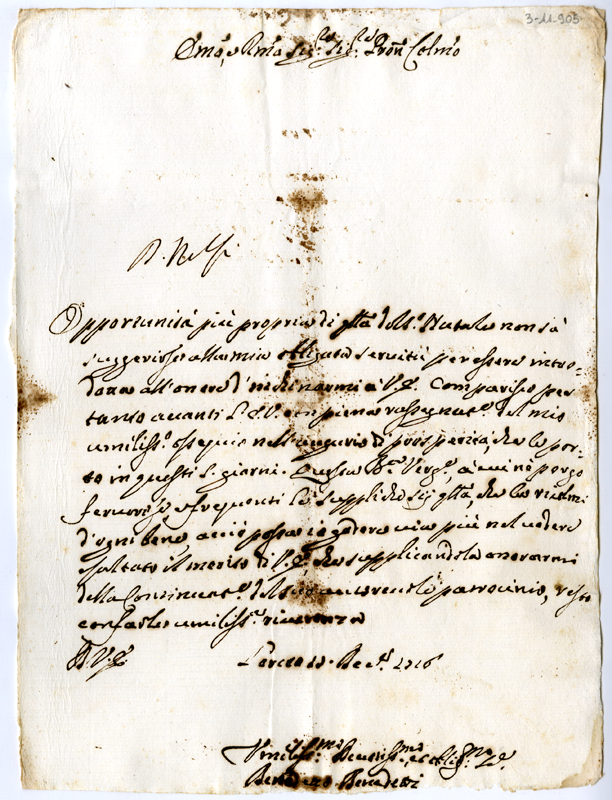 3-11-905
Em̃o, e Rm̃o Sig.re Sig.re Prõn Colmõ
B. Nelli
Opportunità più propria di q̃lla del S.º Natale non sà
suggerirsi alla mia obligata servitù per essere intro-
dotta all'onore d'inchinarmi à V.E. Comparisco per
tanto avanti l'E.V. con piena rassegnat.e del mio
umiliss.º ossequio nell'augurio di prosperità, che le por-
to in questi S. giorni. Questa B.ma Verg.e, à cui ne porgo
fervorose, e frequenti le suppliche sia q̃lla, che la ricolmi
d'ogni bene acciò possa io godere via più nel vedere
esaltato il merito di V.E., che supplicandola onorarmi
della Continuat.e del suo autorevole patrocinio, resto
con farle umiliss.a riverenza
D. V.E.
Loreto 10. Dec.e 1716
Umiliss.mo Devotiss.mo, et oblig.mo Se.
Benedetto Benedetti